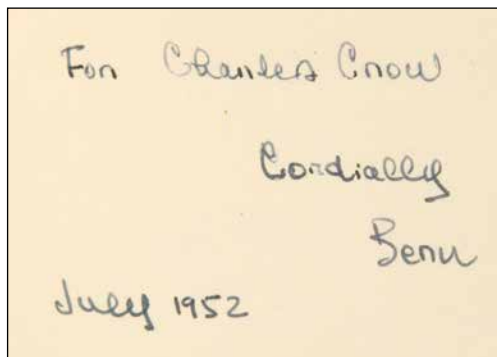 For Charles Crow
Cordially
Benu
July 1952